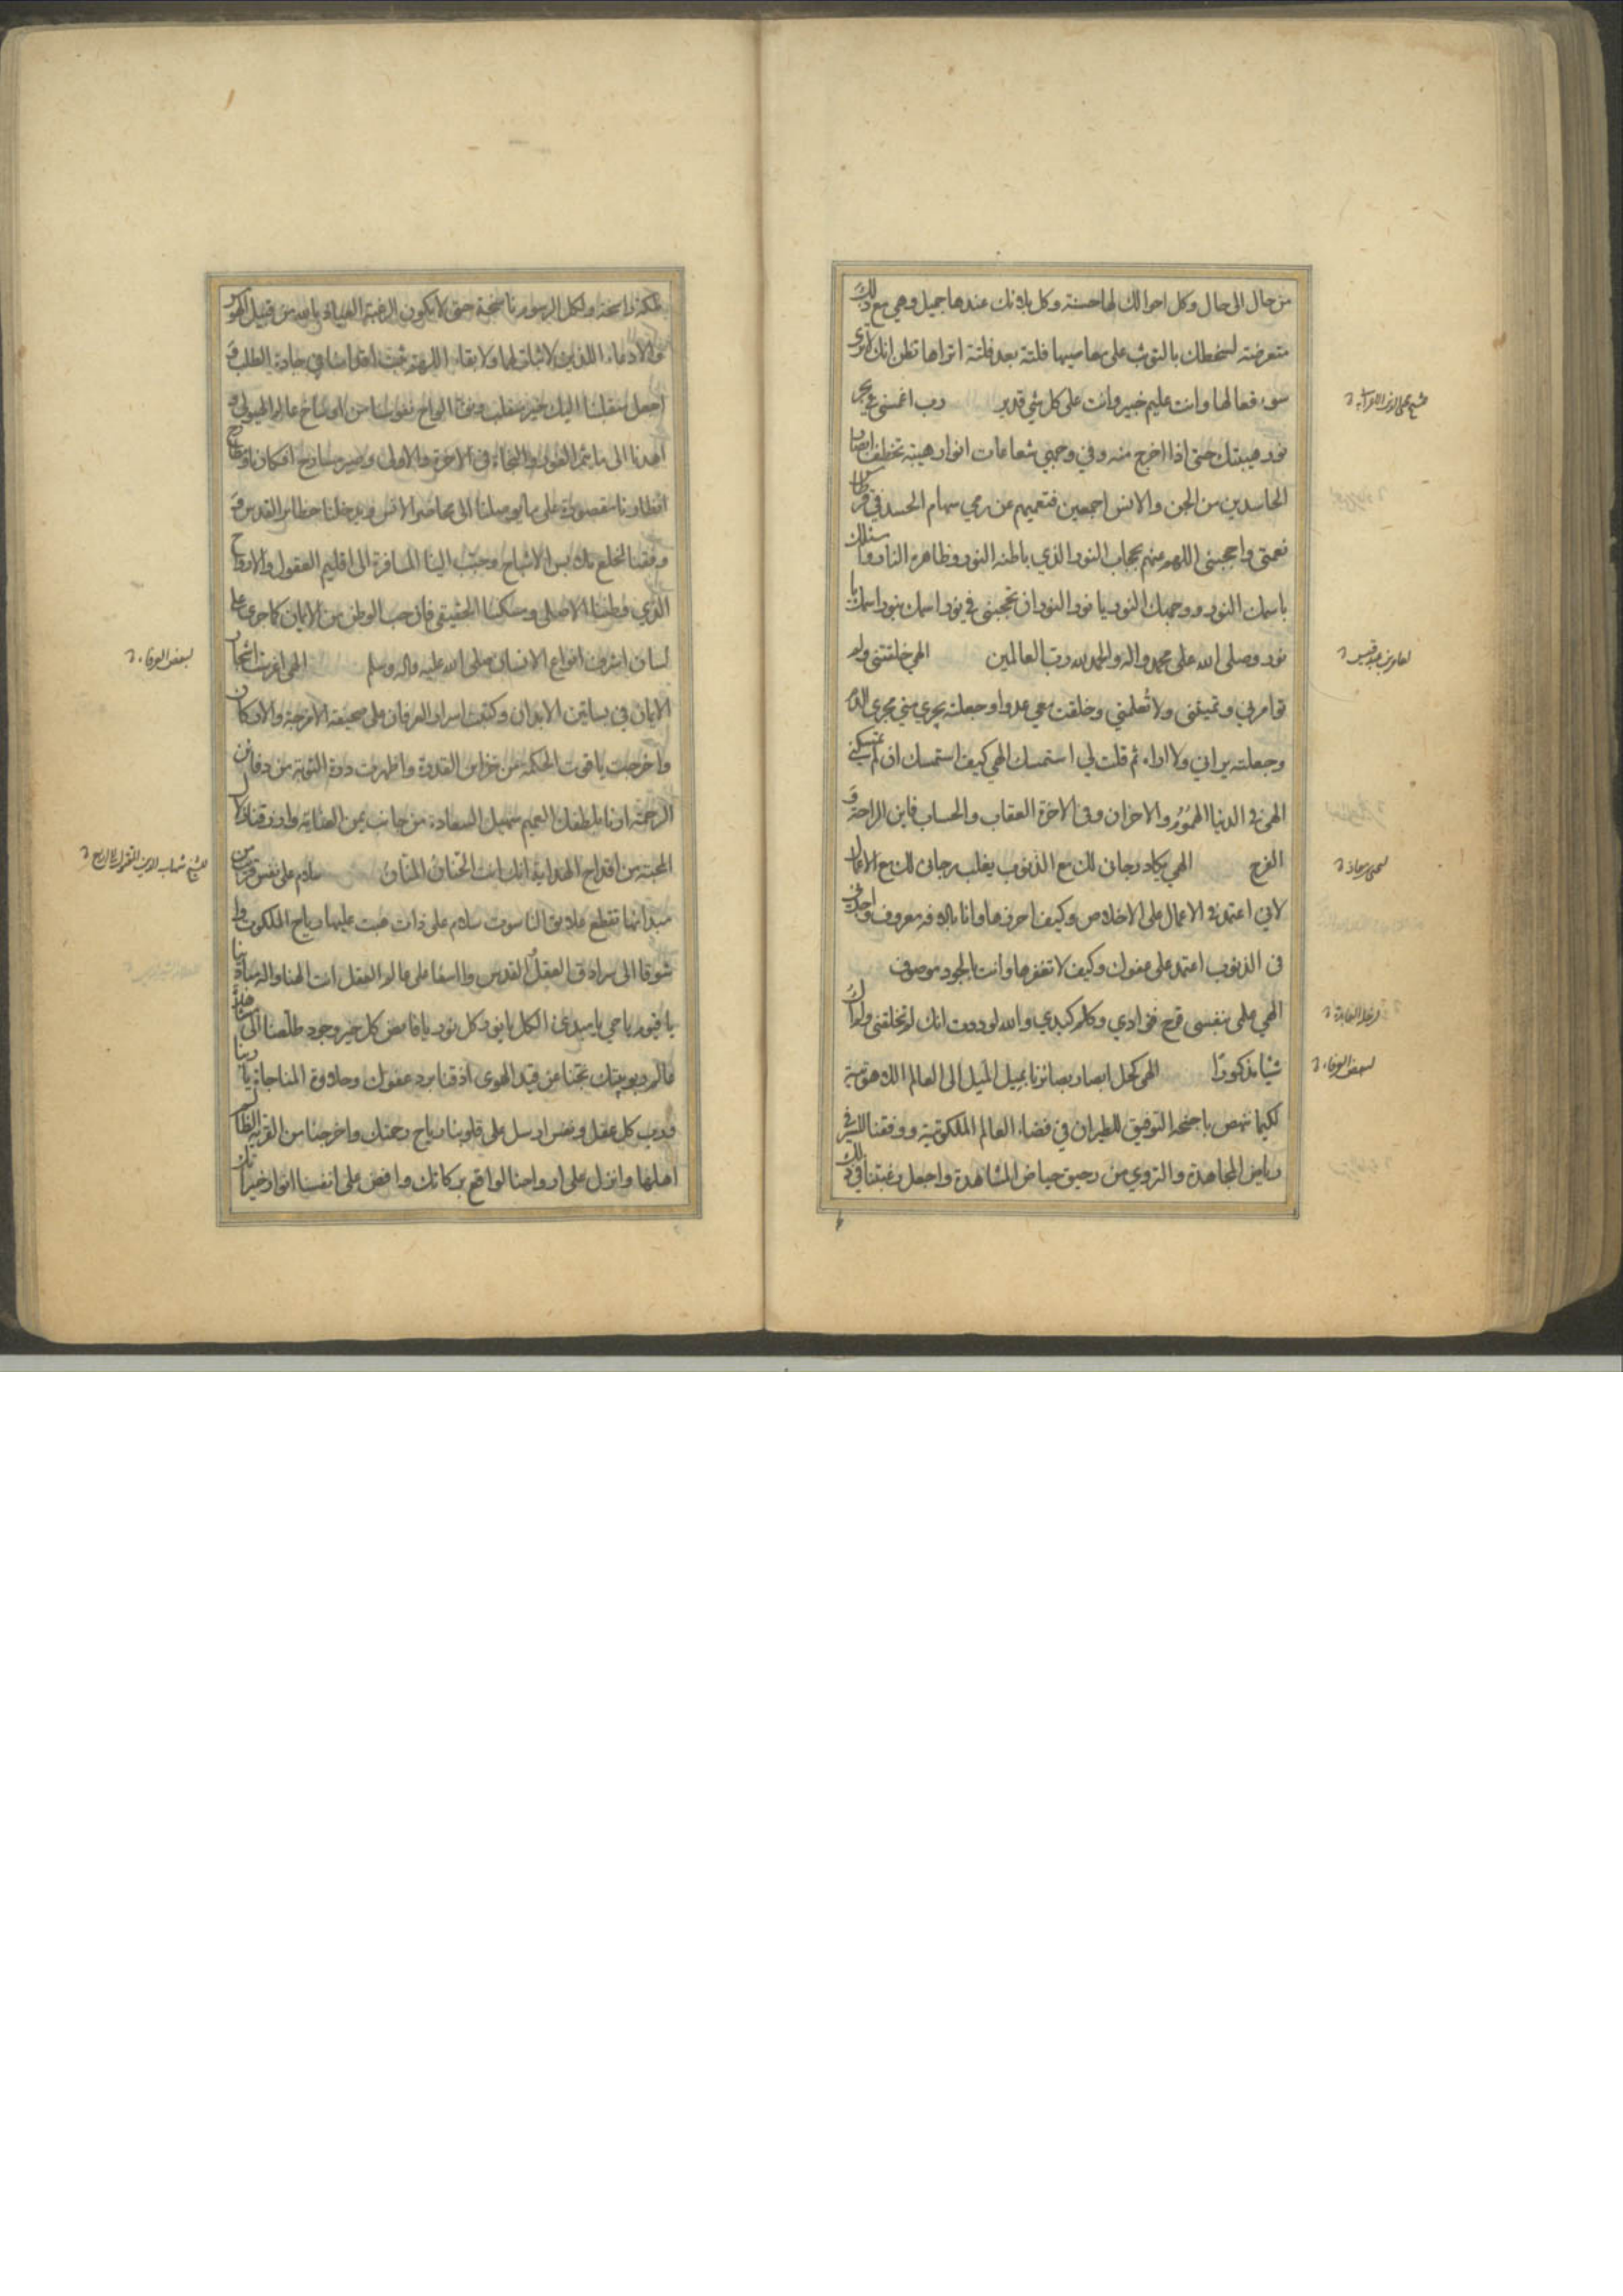 من حال الى حال وكل احوالك لها حسنة وكل بلائك عندها جميل وهي مع ذلك
متعرضة لسخطك بالتوثب على معاصيها فلتة بعد فلتة اتراها تظن انك لا ترى
سوء فعالها وانت عليم خبير وانت على كل شي قدير رب اغمسني في بحر
نور هيبتك حتى اذا اخرج منه وفي وجهي شعاعات انوار هيبته تخطف ابصار
الحاسدين من الجن والانس اجمعين فتعميهم عن رمي سهام الحسد في قرطاس
نعمتي واحجبني اللهم عنهم بحجاب النور الذي باطنه النور وظاهره النار واسئلك
باسمك النور ووجهك النور يا نور النور ان تحجبني في نور اسمك بنور اسمك يا
نور وصلى الله على محمد واله والحمد لله رب العالمين الهي خلقتني ولم
توامرني وتميتني ولا تعلمني وخلقت معي عدوا وجعلته يجري مني مجرى الدم
وجعلته يراني ولا اراه ثم قلت لي استمسك الهي كيف استمسك ان لم تمسكني
الهي في الدنيا الهموم والاحزان وفي الاخرة العقاب والحساب فاين الراحة و
الفرج الهي يكاد رجائي لك مع الذنوب يغلب رجائي لك مع الاعمال
لاني اعتمد في الاعمال على الاخلاص وكيف احرزها وانا بالافة معروف واجدني
في الذنوب اعتمد على عفوك وكيف لا تغفرها وانت بالجود موصوف
الهي على بنفسي قرح فوادي وكلم كبدي والله لوددت انك لم تخلقني ولم اك
شيا مذكورا الهي كحل ابصار بصائرنا بميل الميل الى العالم
لكيما ننهض باجنحة التوفيق للطيران في فضاء العالم الملكوتية ووفقنا للسير في
رياض المجاهدة والتروي من رحيق حياض المشاهدة واجعل رغبتنا في ذلك
لعارف بن عبد قيس
ليحيى بن معاذ
لبعض العرفاء
ملكة راسخة ولكل الرسوم ناسخة حتى لا يكون الرغبة
والادعاء اللذين لا ثبات لها ولا بقاء اللهم ثبت اقدامنا في جادة الطلب و
اجعل منقلبنا اليك خير منقلب ونق الواح نفوسنا من اوساخ عالم الهيولى و
اهدنا الى ما يثمر الفوز والنجاة في الاخرة والاولى وصير مسارح افكارنا ومطارح
انظارنا مقصورة على ما يوصلنا الى محاضر الانس ويدخلنا حظائر القدس و
وفقنا لخلع ملابس الاشباح وحبب الينا المسافرة الى اقليم العقول والارواح
الذي وطننا الاصلي ومسكننا الحقيقي فان حب الوطن من الايمان كما جرى على
لسان اشرف انواع الانسان صلى الله عليه واله وسلم الهي اغرس اشجار
الايمان في بساتين الابدان وكتبت اسرار العرفان على صحيفة الامزجة والاركان
واخرجت ياقوت الحكمة من خزاين القدرة واظهرت درة التوبة من دفائن
الرحمة ارنا بلطفك العميم سهيل السعادة من جانب يمن العناية وارزقنا زلال
المحبة من اقداح الهداية انك انت الحنان المنان سلام على نفس قربت من
مبدائها تقطع علايق الناسوت سلام على ذات هبت عليها رياح الملكوت وا
شوقا الى سرادق العقل القدس وا اسفا على عالم العقل انت الهنا واله مبادئنا
يا قيوم يا حي يا مبدئ الكل يا نور كل نور يا فايض كل خير وجود خلصنا الى مشاهدة
عالم ربوبيتك نجنا من قيد الهوى اذقنا برد عفوك وحلاوة المناجاة يا ربنا
ورب كل عقل ونفس ارسل على قلوبنا رياح رحمتك واخرجنا من القرية الظالم
اهلها وانزل على ارواحنا لوامع بركاتك وافض على انفسنا انوار خيراتك
لبعض العرفاء
للشيخ شهاب الدين المقتول